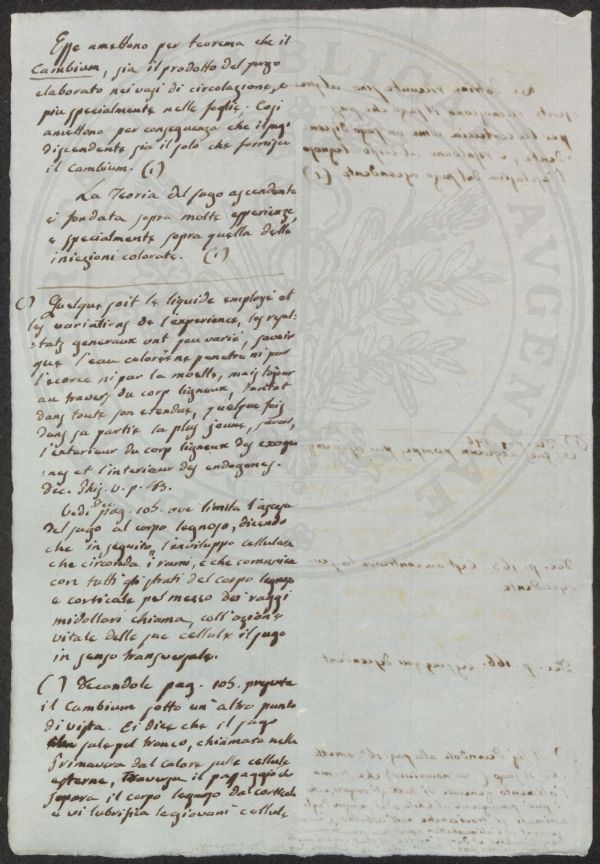 Esse amettono per teorema che il
Cambium, sia il prodotto del sugo
elaborato nei vasi di circolazione, e
piu specialmente nelle foglie. Cosi
amettono per conseguenza che il sugo
discendente sia il solo che fornisca
il Cambium. (1)
La Teoria del sugo ascendente
è fondata sopra molte esperienze,
e specialmente sopra quella delle
iniezioni colorate. (1)
() Quelque soit le liquide employé et
les variations de l'experience, les resul-
tats generaux ont peu varié, savoir
que l'eau colorée ne penetre ni par
l'ecorce ni par la moelle, mais toujour
au travers du corp ligneux, tantot
dans toute son etendue, quelque fois
dans sa partie la plus jeune, savoir,
l'exterieur du corp ligneux des exoge-
nes et l'interieur des endogenes.
Dec. Phis. v. p. 83.
Vedi Dec. pag. 105. ove limita l'ascesa
del sugo al corpo legnoso, dicendo
che in seguito, l'inviluppo cellulare
che circonda i rami, e che comunica
con tutti gli strati del corpo legnoso
e corticale pel mezzo dei raggi
midollari chiama, coll'azione
vitale delle sue cellule il sugo
in senso transversale.
() Decandole pag. 105. presenta
il Cambium sotto un'altro punto
di vista. Ei dice che il sugo
sale pel tronco, chiamato nella
Primavera dal calore sulle cellule
esterne, traversa il passaggio che
separa il corpo legnoso dal corticale
e vi lubrifica le giovani cellule